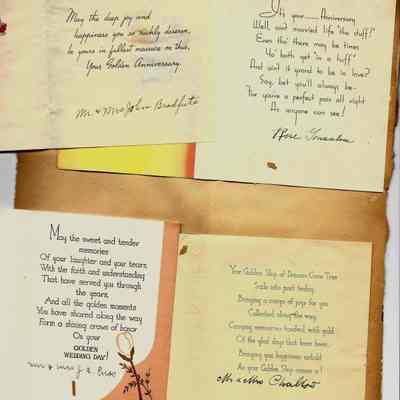 May the deep joy and
happiness you so richly deserve,
be yours in fullest measure on this,
Your Golden Anniversary.
Mr & Mrs John
It's your Anniversary
Well, ain't married life "the stuff!"
Even tho' there may be times
Yo' both get "in a huff"
And ain't it grand to be in love?
Say, bet you'll always be-
For you're a perfect pair all right
As anyone can see!
Rose
May the sweet and tender
memories
Of your laughter and your tears,
With the faith and understanding
That have served you through
the years,
And all the golden moments
You have shared along the way
Form a shining crown of honor
On your
GOLDEN
WEDDING DAY!
Mr & Mrs J.
Your Golden Ship of Dreams Come True
Sails into port today
Bringing a cargo of joys for you
Collected along the way,
Carrying memories touched with gold
Of the glad days that have been,
Bringing you happiness untold
As your Golden Ship comes in!
Mr & Mrs